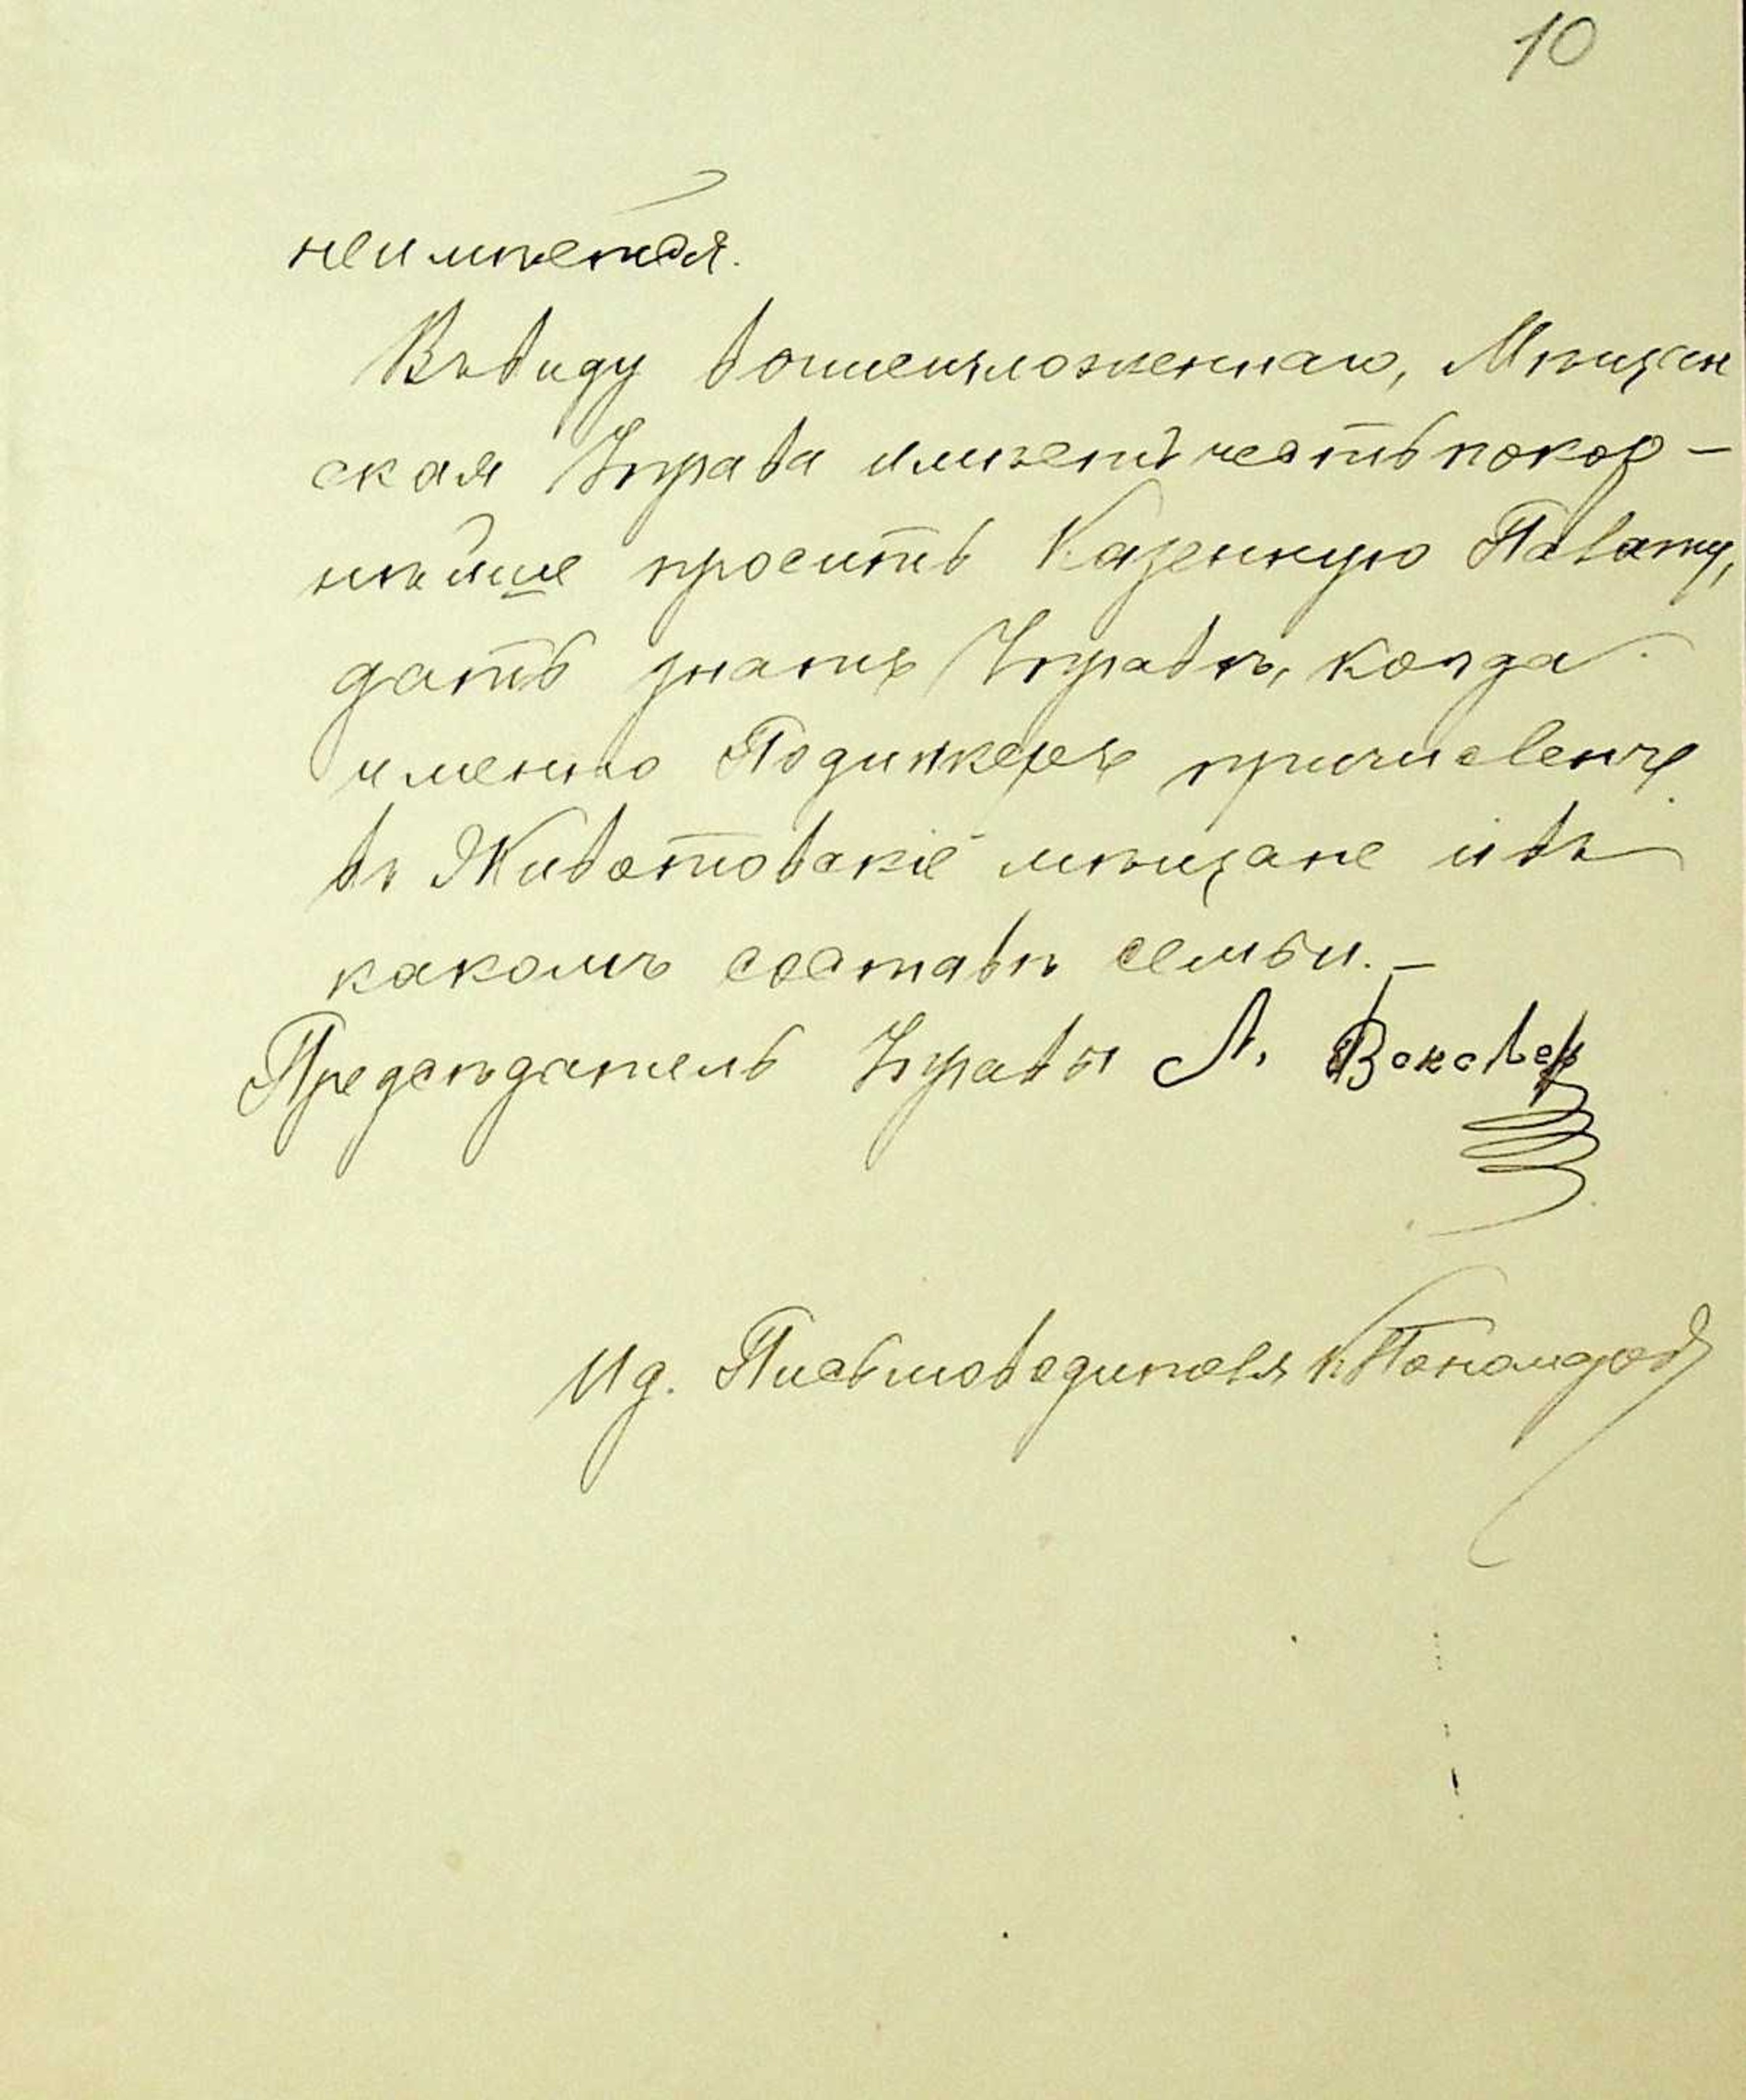 10
неимѣется.
Въ виду вышеизложеннаго, Мѣщан
ская Управа имѣетъ честь покор-
нѣйше просить Казенную Палату,
дать знать Управѣ, когда
именно причислены
въ Животовскіе мѣщане и въ
какомъ составѣ семьи. –
Предсѣдатель Управы А.
Ид. Письмоводителя